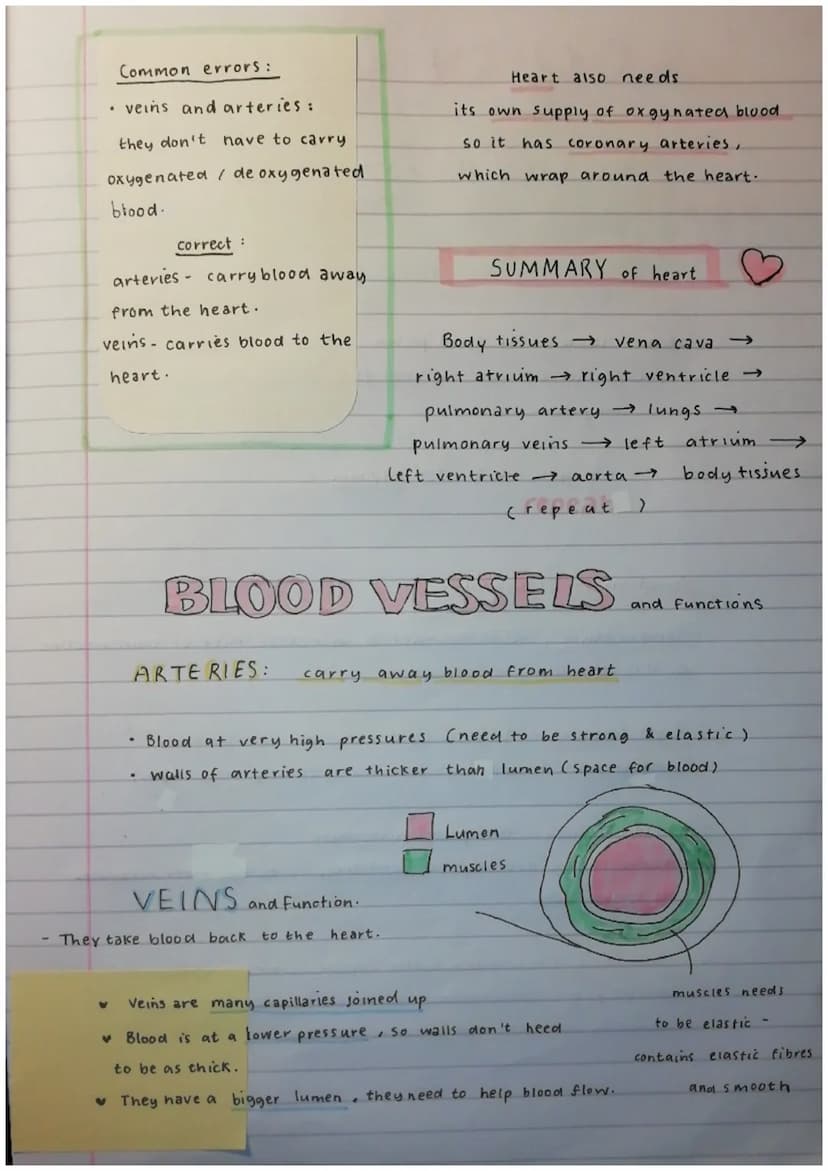 Common errors:
• veins and arteries:
they don't have to carry
oxygenated / deoxygenated
blood.
correct:
arteries - carry blood away
from the heart.
veins - carries blood to the
heart.
Heart also needs
its own supply of oxgynated blood
so it has coronary arteries,
which wrap around the heart.
SUMMARY of heart
Body tissues → vena cava →
right atrium → right ventricle →
pulmonary artery → lungs →
pulmonary veins → left atrium →
Left ventricle → aorta → body tissues
(repeat)
BLOOD VESSELS and functions
ARTERIES: carry away blood from heart
• Blood at very high pressures (need to be strong & elastic)
• walls of arteries are thicker than lumen (space for blood)
Lumen
muscles
VEINS and Function.
- They take blood back to the heart.
muscles needs
to be elastic -
contains elastic fibres
and smooth
♥ Veins are many capillaries joined up
♥ Blood is at a lower pressure, so walls don't need
to be as thick.
♥ They have a bigger lumen, they need to help blood flow.